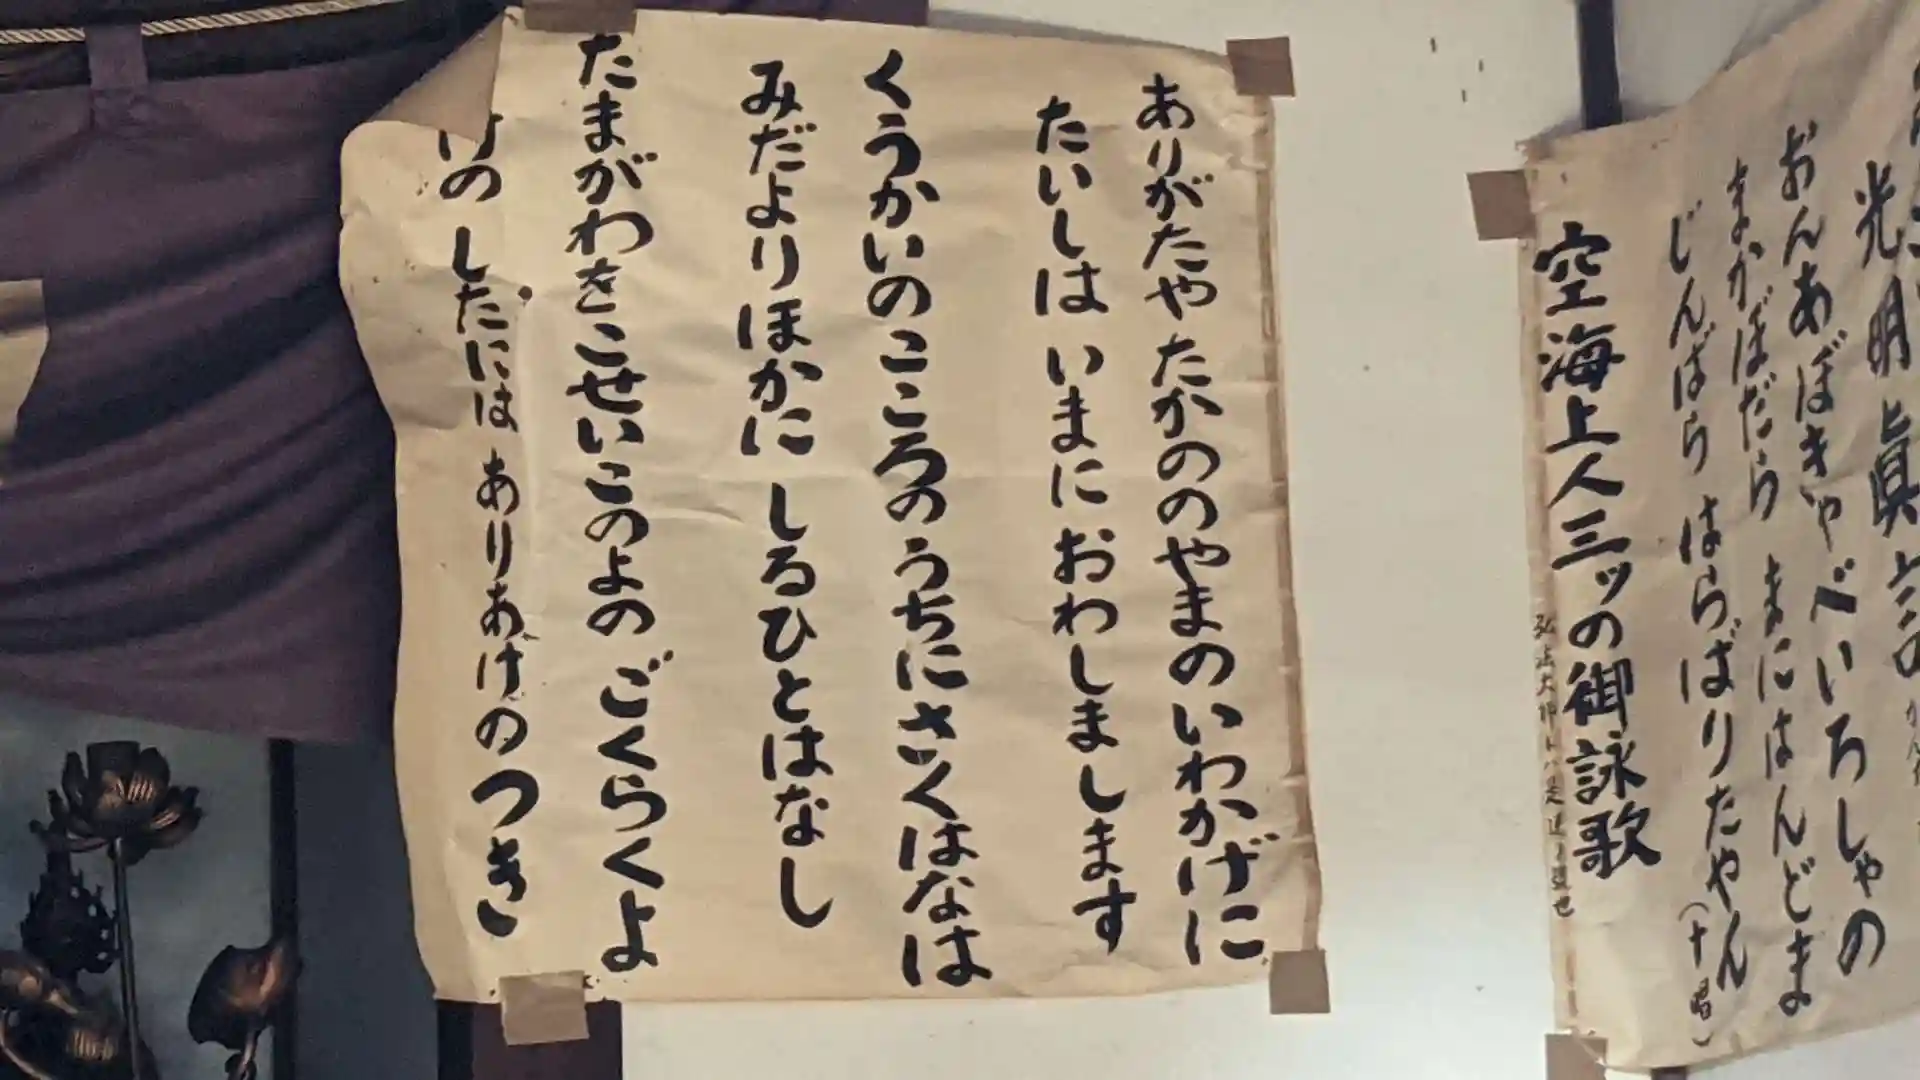 光明眞言の
おんあぼきゃ べいろしゃの
まかぼだら まにはんどま
じんばら はらばりたやん
(十唱)
空海上人三ッの御詠歌
ありがたや たかののやまのいわかげに
たいしは いまに おわしまします
くうかいのこころのうちにさくはなは
みだよりほかに しるひとはなし
たまがわをこせいこのよの ごくらくよ
けの したには ありあけのつき